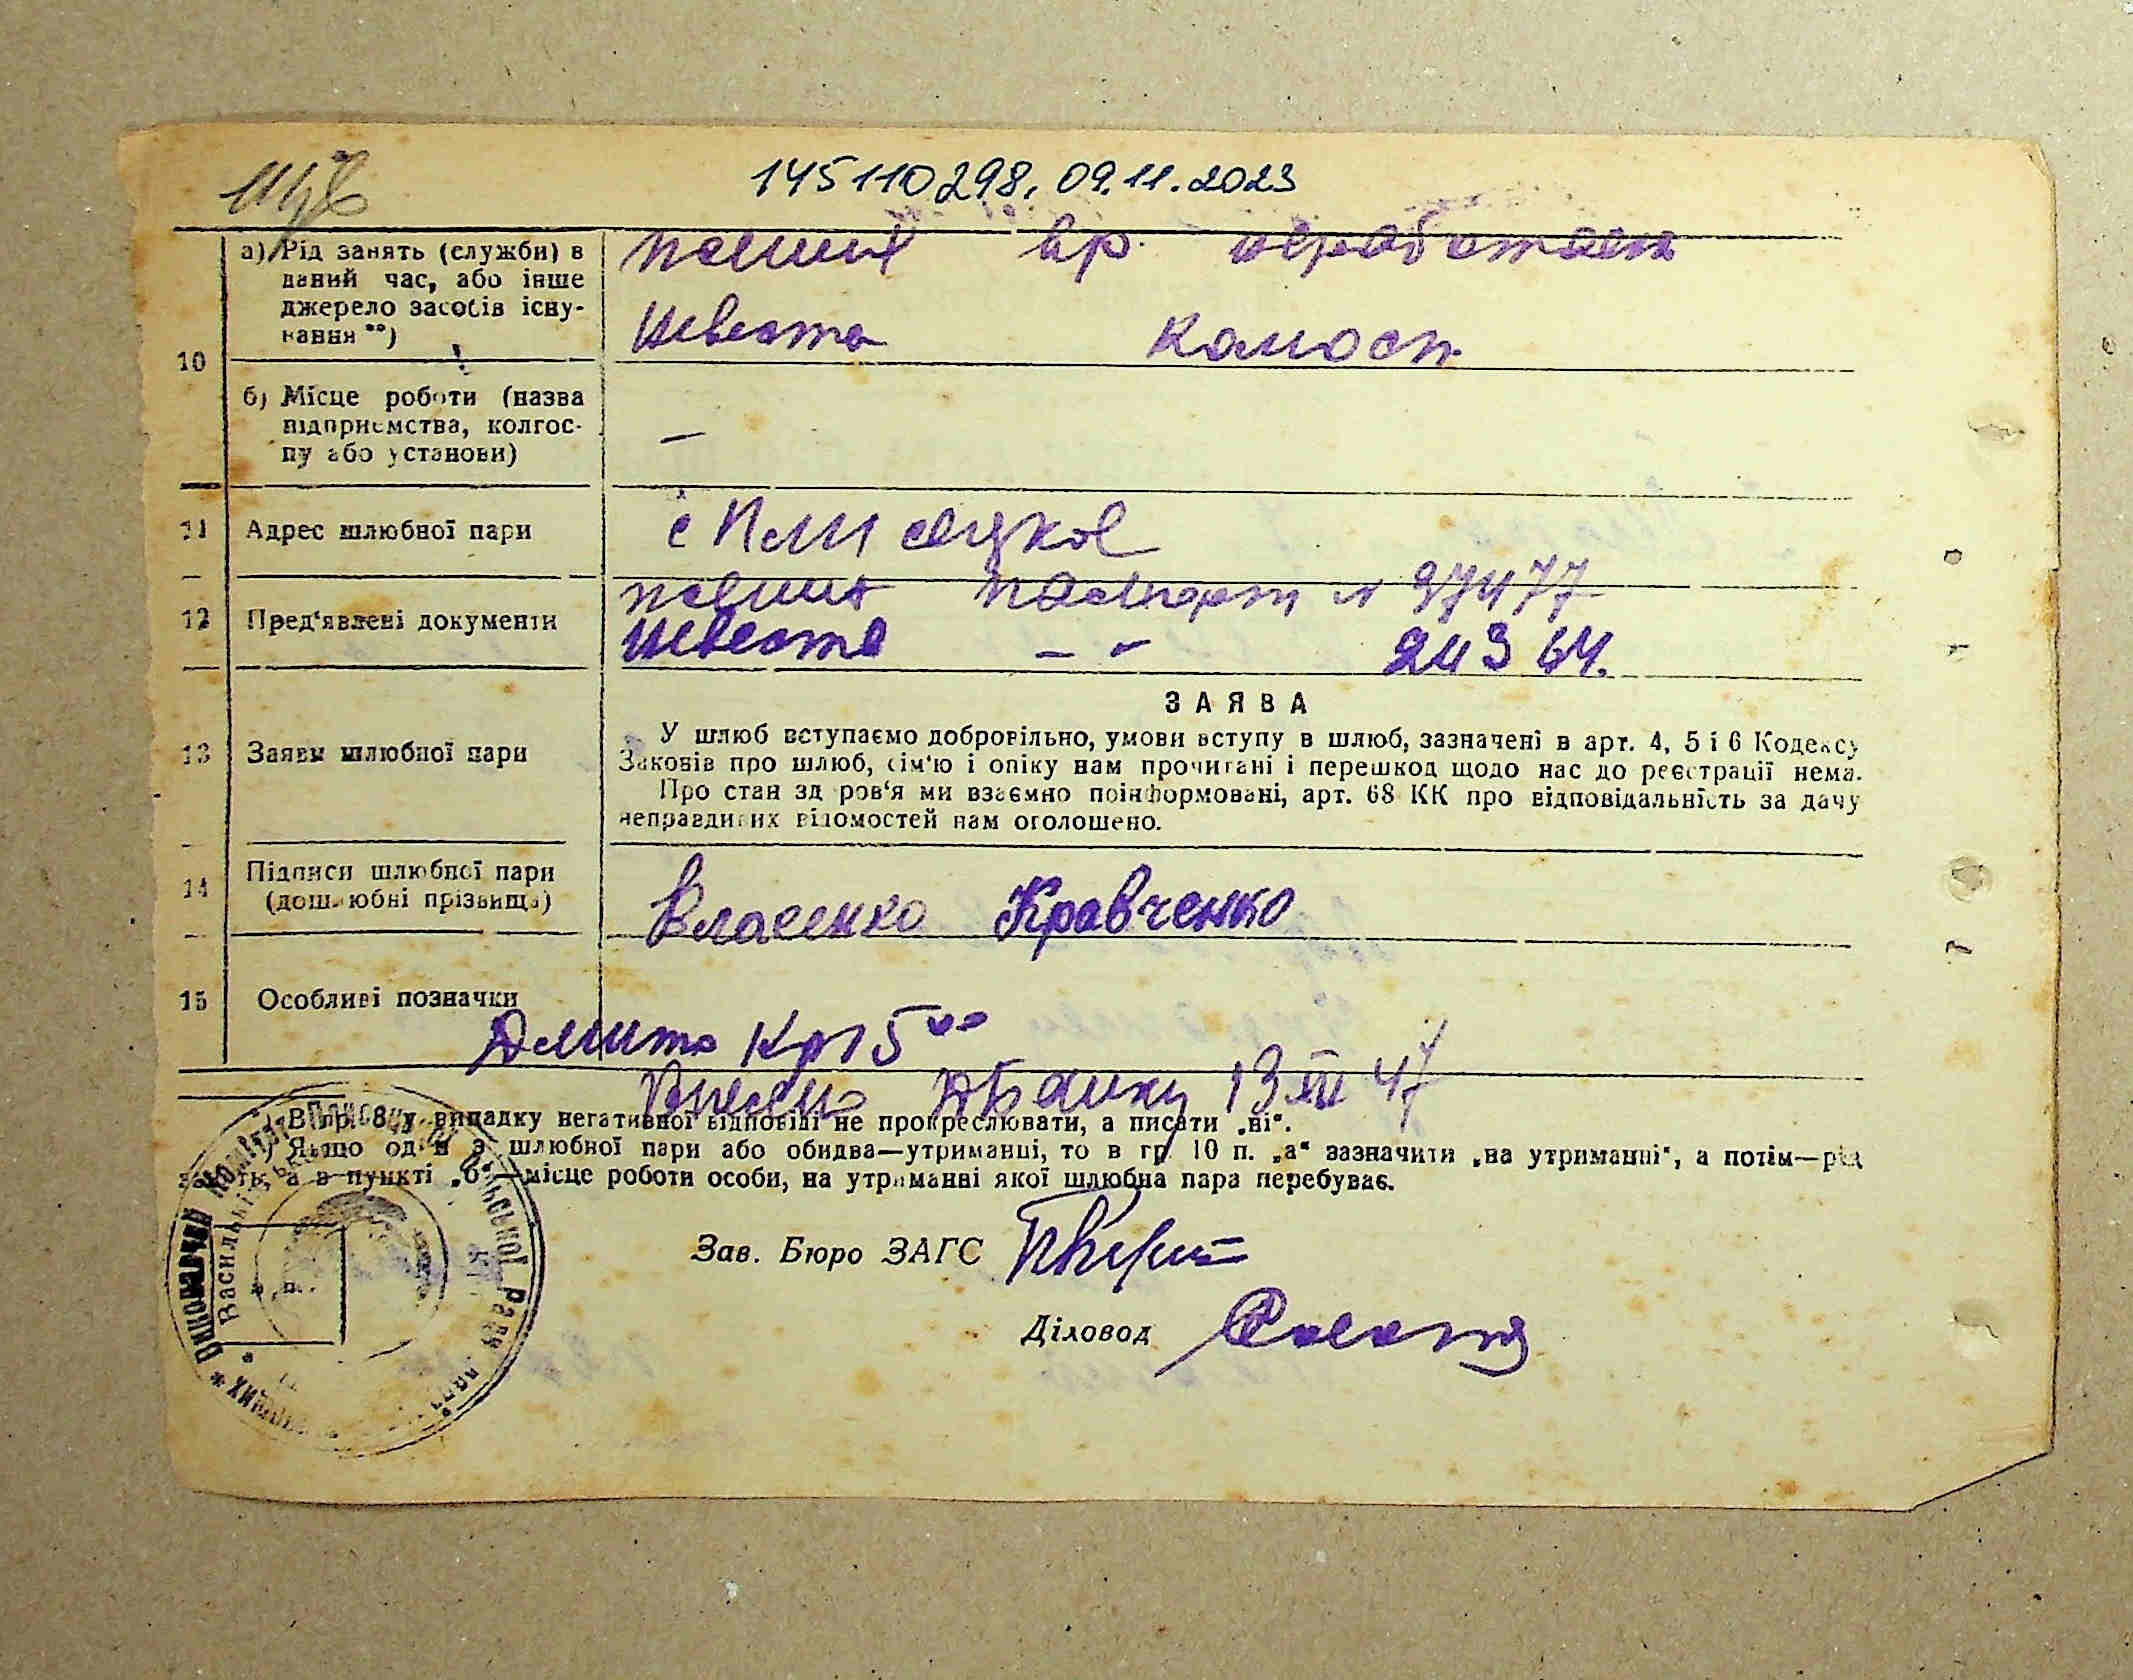 145110298, 09.11.2023
10
а) Рід занять (служби) в
даний час, або інше
джерело засобів існу-
вання **)
жених вр. неработает
невеста
б) Місце роботи (назва
підприємства, колгос-
пу або установи)
—
11
Адрес шлюбної пари
с
12
Пред'явлені документи
жених паспорт N 97477
невеста — - 24364.
13
Заявы шлюбної пари
ЗАЯВА
У шлюб вступаємо добровільно, умови вступу в шлюб, зазначені в арт. 4, 5 і 6 Кодексу
Законів про шлюб, сім'ю і опіку нам прочитані і перешкод щодо нас до реєстрації нема.
Про стан здоров'я ми взаємно поінформовані, арт. 68 КК про відповідальність за дачу
неправдивих відомостей нам оголошено.
14
Підписи шлюбної пари
(дошлюбні прізвища)
Власенко Кравченко
15
Особливі позначки
15 00
13 XII 47
*) В гр. 8 у випадку негативної відповіді не прокреслювати, а писати „ні".
**) Якщо один з шлюбної пари або обидва—утриманці, то в гр. 10 п. „а" зазначити „на утриманні", а потім—рід
занять, а в пункті „б"—місце роботи особи, на утриманні якої шлюбна пара перебуває.
Зав. Бюро ЗАГС
Діловод